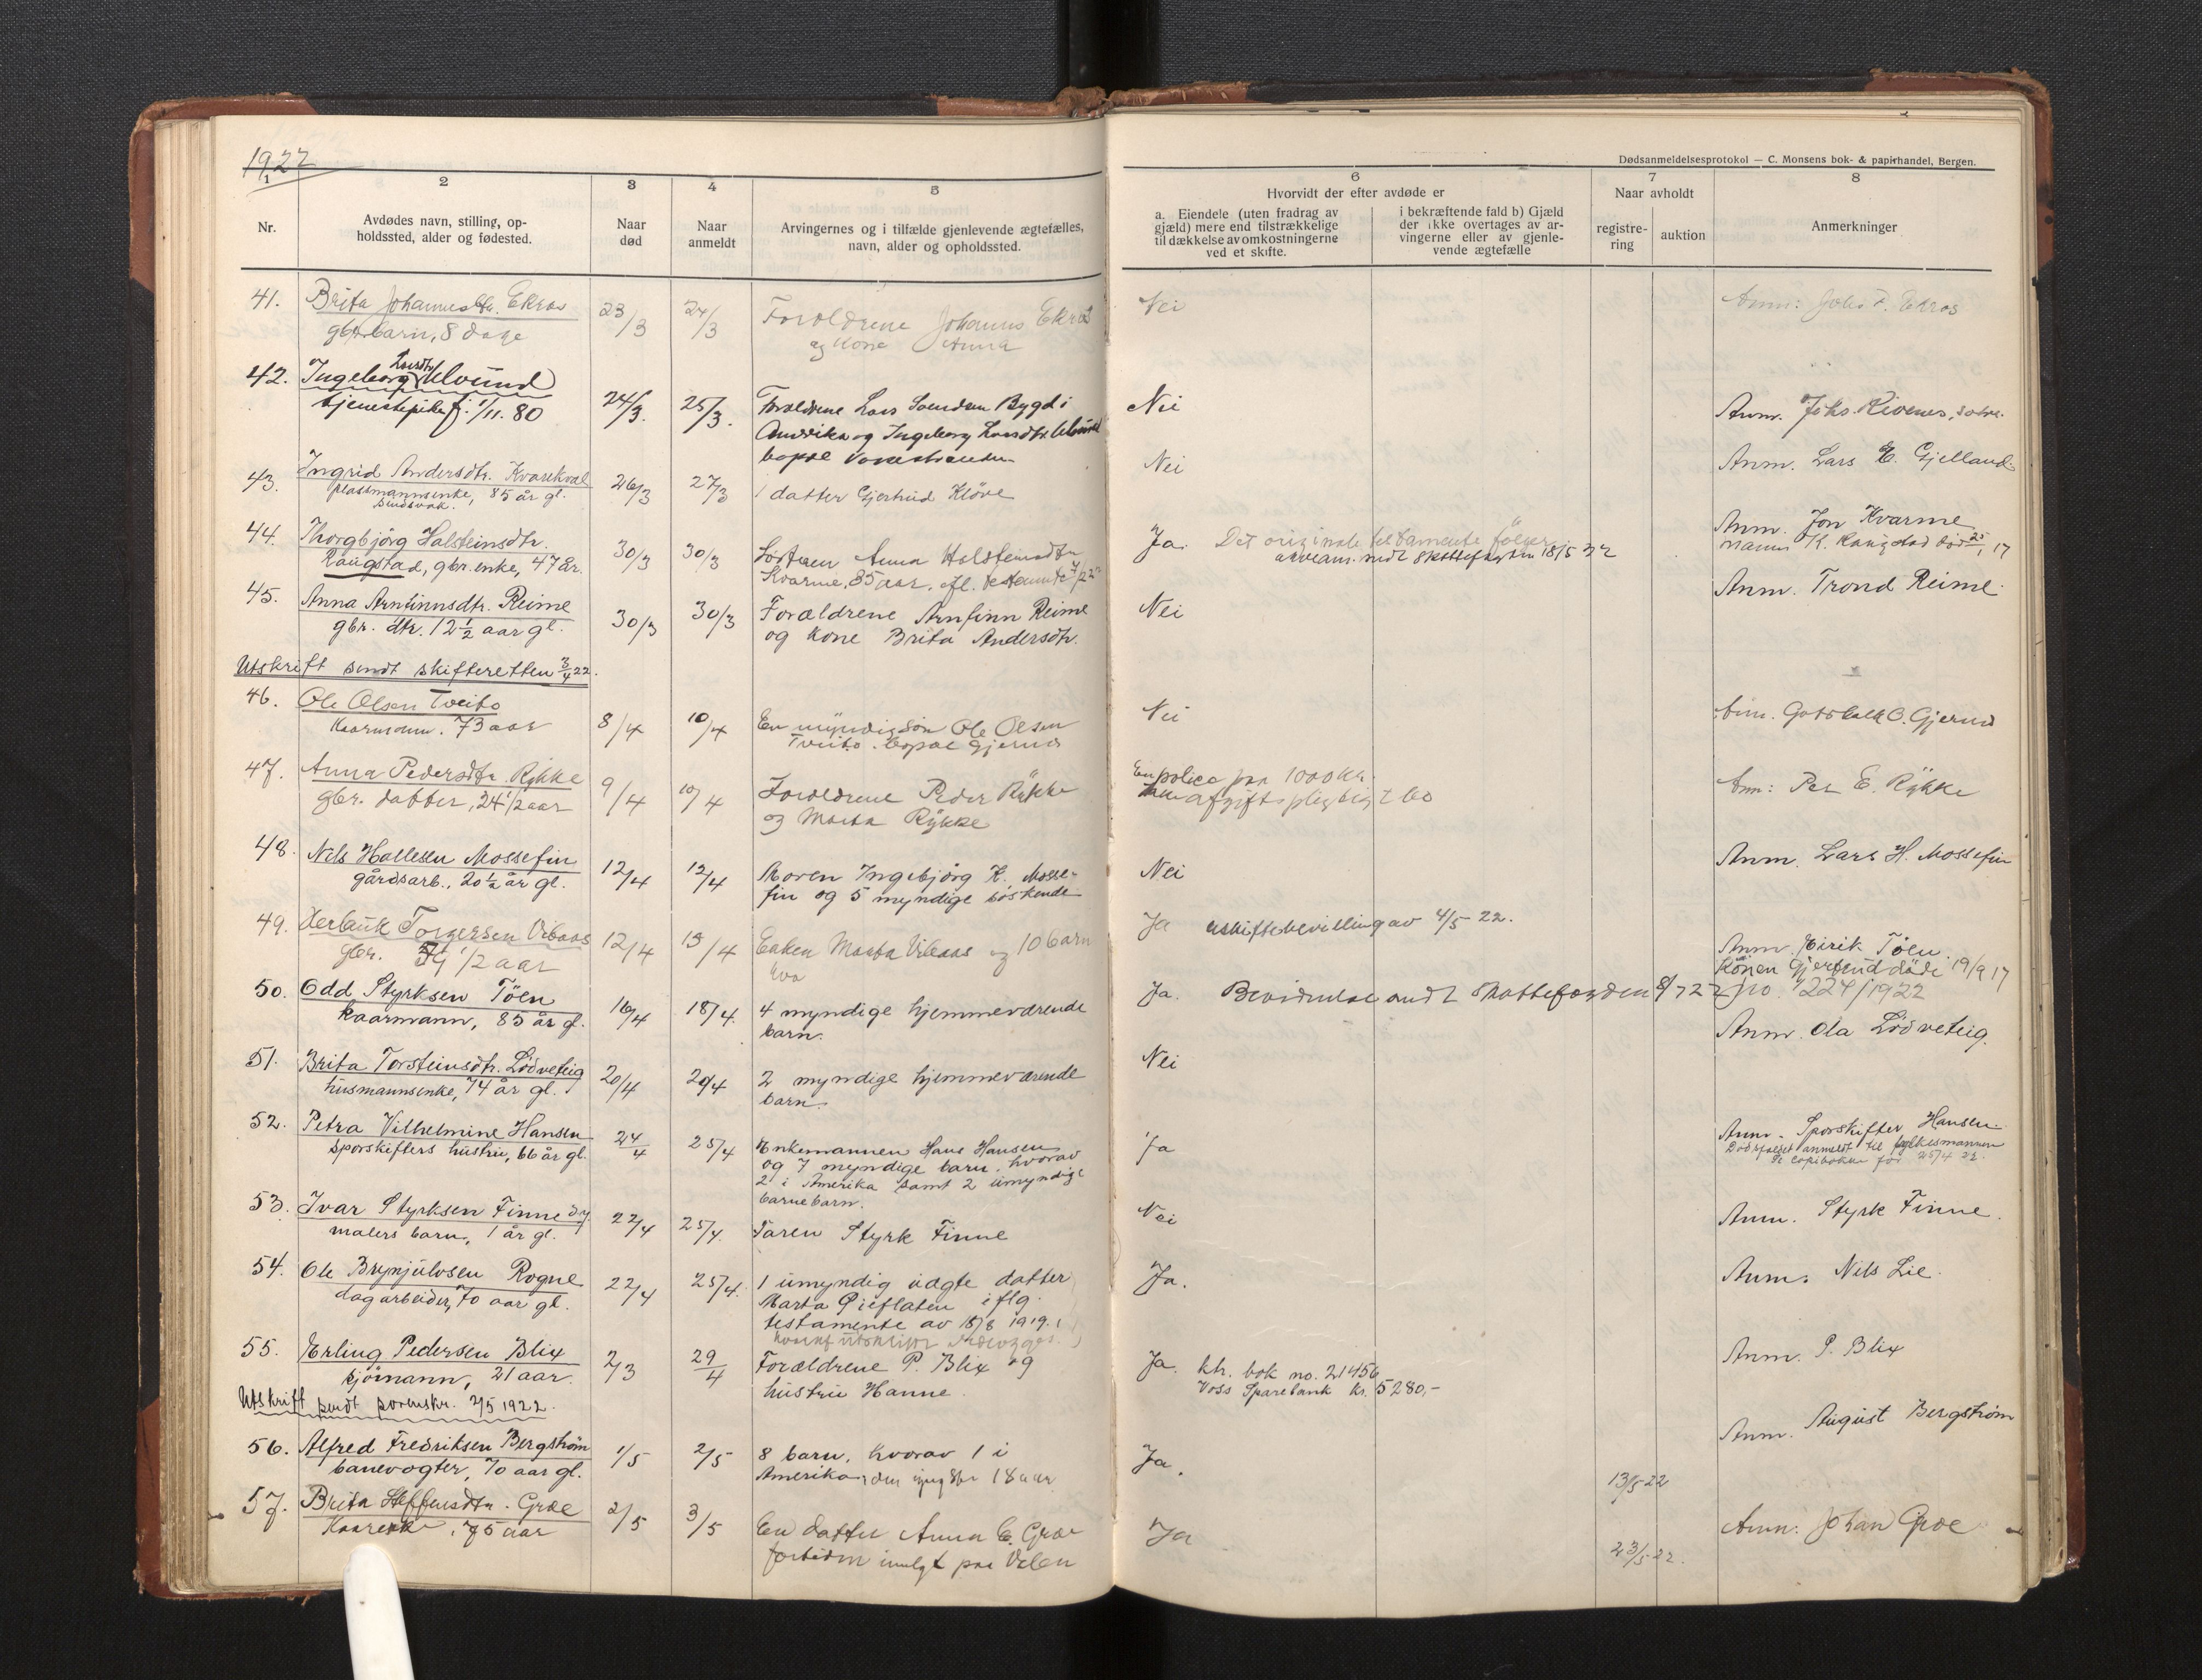 1922
Dødsanmeldelsesprotokol — C. Monsens bok- & papirhandel, Bergen.
1
Nr.
2
Avdødes navn, stilling, op-
holdssted, alder og fødested.
3
Naar
død
4
Naar
anmeldt
5
Arvingernes og i tilfælde gjenlevende ægtefælles,
navn, alder og opholdssted.
6
Hvorvidt der efter avdøde er
a. Eiendele (uten fradrag av
gjæld) mere end tilstrækkelige
til dækkelse av omkostningerne
ved et skifte.
i bekræftende fald b) Gjæld
der ikke overtages av ar-
vingerne eller av gjenle-
vende ægtefælle
7
Naar avholdt
registre-
ring
auktion
8
Anmerkninger
41. Brita Johannesdtr. Ekros
gbr. barn, 8 dage
23/3
24/3
Forældrene Johannes Ekros
og kone Anna
Nei
Anm: Johs F. Ekros
42. Ingeborg Larsdtr. Ulvund
tjenestepike f. 1/11. 80
24/3.
25/3.
Forældrene Lars Bygd i
Amerika og Ingeborg Larsdtr. Ulvund
bopæl Vossestranden
Nei
Anm. Johs. Rivenes,
43. Ingrid Andersdtr. Kvarekval
plassmannsenke, 85 år gl.
sindsvak.
26/3
27/3
1 datter Gjertrud Kløve
Nei
Anm. Lars E. Gjelland
44. Thorgbjørg Halsteinsdtr.
Raugstad, gbr. enke, 47 år.
30/3
30/3
Søsteren Anna Halsteinsdtr
Kvarme, 85 aar, ifl. testamente 7/2 22
Ja. Det originale testamente følger
arveanm. sendt skattefogden 18/5 22
Anm. Jon Kvarme
Mannen K. Raugstad død 25/1 17
45. Anna Arnfinnsdtr. Reime
gbr. dtr. 12 1/2 aar gl.
30/3
30/3
Forældrene Arnfinn Reime
og kone Brita Andersdtr.
Nei
Anm. Trond Reime
Utskrift sendt skifteretten 3/4 22.
46. Ole Olsen Tveito
Kaarmann. 73 aar
8/4
10/4
En myndig søn Ole Olsen
Tveito. bopæl Gjerme
Nei
Anm. Gotskalk O. Gjerme
47. Anna Pedersdtr. Rykke
gbr. datter, 24 1/2 aar
9/4
10/4
Forældrene Peder Rykke
og Marta Rykke
En police paa 1000 kr.
afgiftspligtigt bo
Anm: Per E. Rykke
48. Nils Hallesen Mossefin
gårdsarb., 20 1/2 år gl.
12/4
12/4
Moren Ingebjørg K. Mosse-
fin og 5 myndige søskende
Nei
Anm. Lars H. Mossefin
49. Herlauk Torgersen Vibaas
gbr. 54 1/2 aar
12/4
13/4
Enken Marta Vibaas og 10 barn
hvo
Ja uskiftebevilling av 4/5 22.
50. Odd Styrksen Töen
kaarmann, 85 år gl.
16/4
18/4.
4 myndige hjemmeværende
barn.
Ja. Bevidnelse sendt skattefogden 8/7 22 jno. 1224/1922
Anm. Eirik Töen.
Konen Gjertrud døde 19/9 17
51. Brita Torsteinsdtr. Lödveteig
husmannsenke, 74 år gl.
20/4
20/4
2 myndige hjemmeværende
barn.
Nei
Anm. Ola Lödveteig.
52. Petra Vilhelmine Hansen
sporskifters hustru, 66 år gl.
24/4
25/4
Enkemannen Hans Hansen
og 7 myndige barn, hvorav
2 i Amerika samt 2 umyndige
barnebarn.
Ja
Anm. Sporskifter Hansen.
Dødsfaldet anmeldt til fylkesmannen
se copiboken for 25/4 22.
53. Ivar Styrksen Finne
malers barn, 1 år gl.
22/4
25/4.
Faren Styrk Finne
Nei
Anm. Styrk Finne.
54. Ole Brynjulvsen Rogne
dagarbeider, 70 aar gl.
22/4
25/4.
1 umyndig uægte datter
Marta Gieflaten iflg.
testamente av 18/8 1919.
hvoraf utskrift vedlægges.
Ja.
Anm. Nils Lie.
55. Erling Pedersen Blix
sjömann, 21 aar.
2/3
29/4
Forældrene P. Blix og
hustru Hanne.
Ja. ktr. bok no. 21456
Voss Sparebank kr. 5280,-
Anm. P. Blix
Utskrift sendt sorenskr. 2/5 1922.
56. Alfred Fredriksen Bergstrøm
banevogter, 70 aar gl.
1/5
2/5
8 barn, hvorav 1 i
Amerika, den yngste 18 aar
Ja.
13/5 22
Anm. August Bergstrøm
57. Brita Steffensdtr. Græe
Kaarenke, 75 aar
2/5
3/5
En datter Anna E. Græe
fortiden innlgt paa Valen
Ja
23/5 22.
Anm: Johan Græe